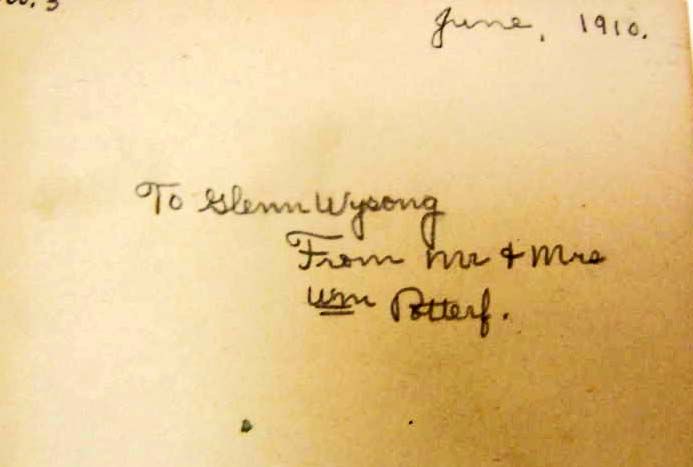 June, 1910.
To Glenn Wysong
From Mr & Mrs
Wm Potterf.